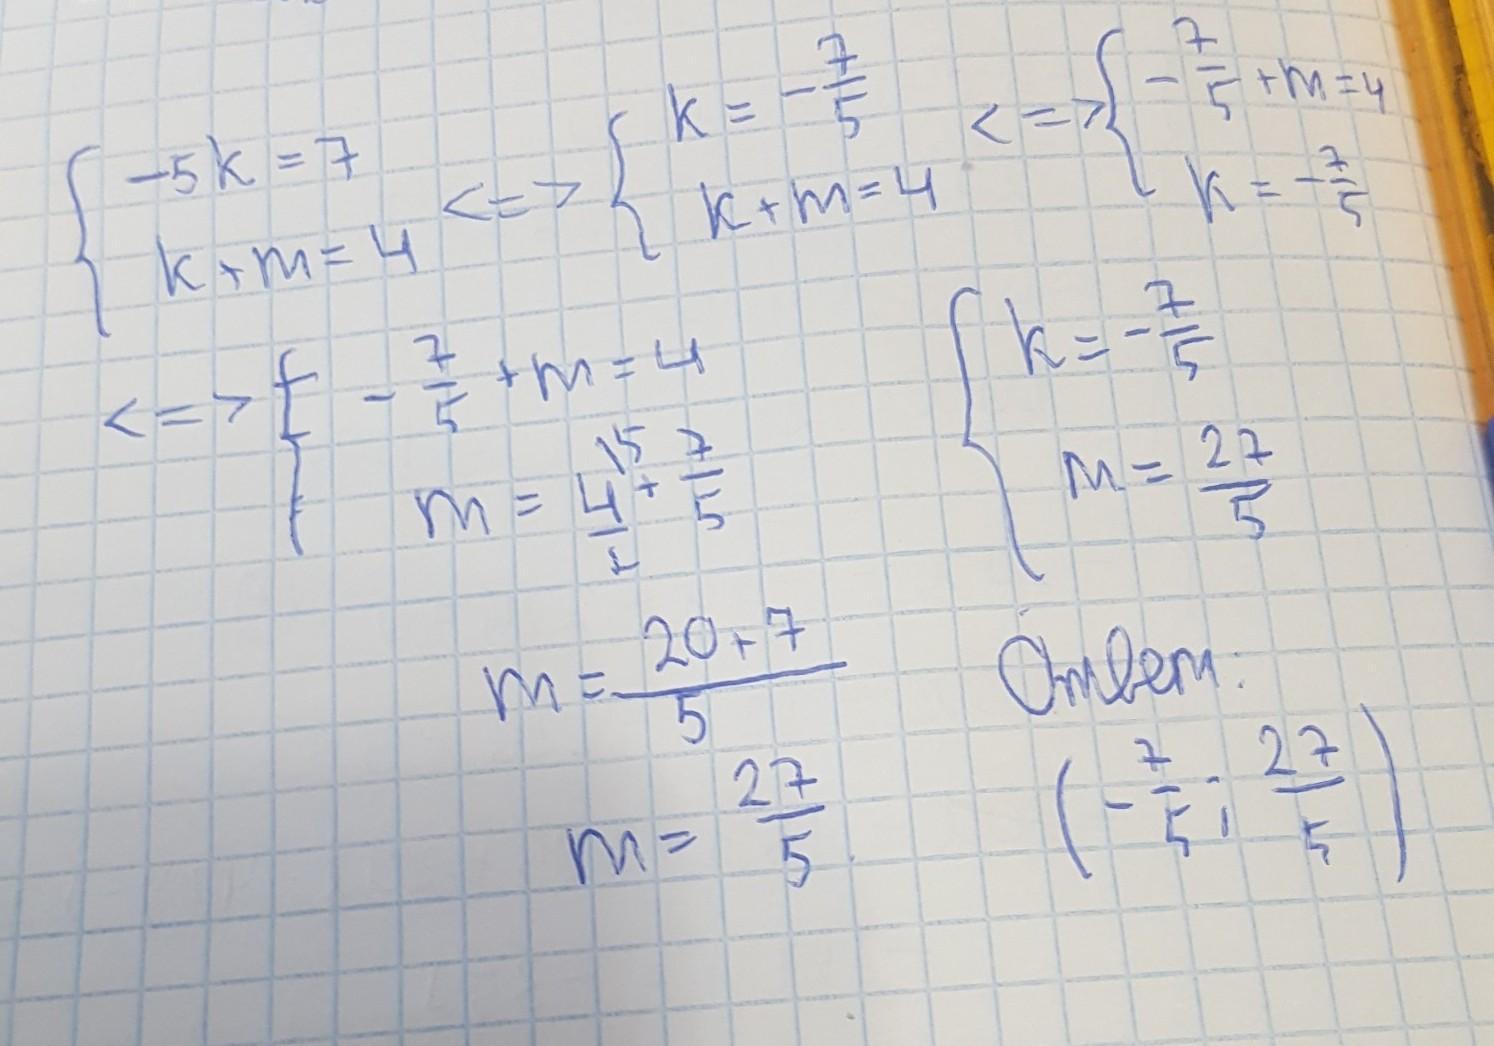 { -5k = 7
k + m = 4
<=> { k = -7/5
k + m = 4
<=> { -7/5 + m = 4
k = -7/5
<=> { -7/5 + m = 4
m = 4/1 \5 + 7/5
m = 20 + 7/5
m = 27/5
{ k = -7/5
m = 27/5
Ответ:
(-7/5; 27/5)